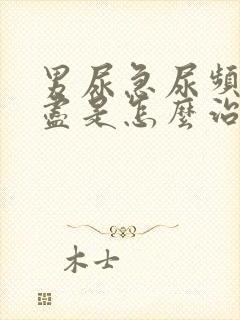 男尿急尿頻
盡是怎麼治
木士